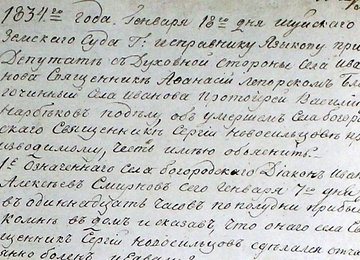 1834го года. Генваря 18го дня шуйскаго
Земскаго Суда Гн: исправнику Языкову при
Депутатъ съ Духовной стороны села ива
нова Священникъ Афанасiй Лепорскомъ Бла
гочинный села иванова Протоiерей Василiй
Нарбековъ подтем, объ умершемъ села Богород
скаго Священникъ Сергiй Новосильцовъ
изводимому, честь имѣю объяснить:
1е Означеннаго села богородскаго Дiаконъ Иванъ
Алексѣевъ Смирновъ сего Генваря 7го дня
въ одиннадцать часовъ пополудни прибы
комнѣ въ домъ и сказавъ, что онаго села Свя
щенникъ Сергiй новосильцовъ сдѣлался отча
янно боленъ